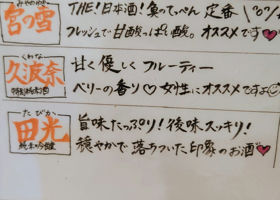 みやのゆき
宮の雪
THE!日本酒!食のてっぺん 定番
フレッシュで甘酸っぱい酸。オススメです♡
くわな
久波奈
特別純米酒
甘く優しく フルーティー
ベリーの香り♡女性にオススメですよ
たびか
田光
純米吟醸
旨味たっぷり!後味スッキリ!
穏やかで落ちついた印象のお酒♥